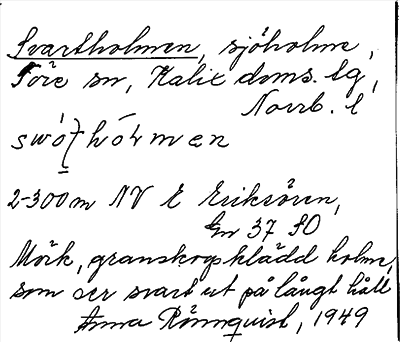 Svartholmen, sjöholme,
Töre sn, Kalix doms. tg,
Norrb. l
swó hólmen
2-300 m NV l Eriksören,
Gn 37 SO
Mörk, granskogsklädd holme,
som ser svart ut på långt håll
Anna Rönnquist, 1949